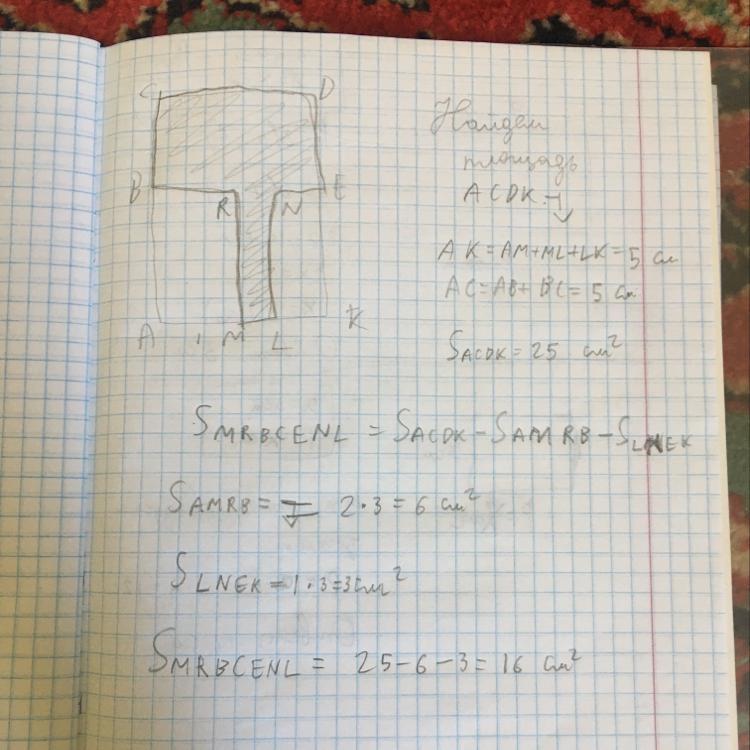 C D
B R N E
A M L K
Найдем
площадь
ACDK
AK = AM+ML+LK = 5 см
AC = AB + BC = 5 см
SACDK = 25 см²
SMRBCENL = SACDK - SAMRB - SLNEK
SAMRB = 2·3 = 6 см²
SLNEK = 1·3=3см²
SMRBCENL = 25-6-3 = 16 см²